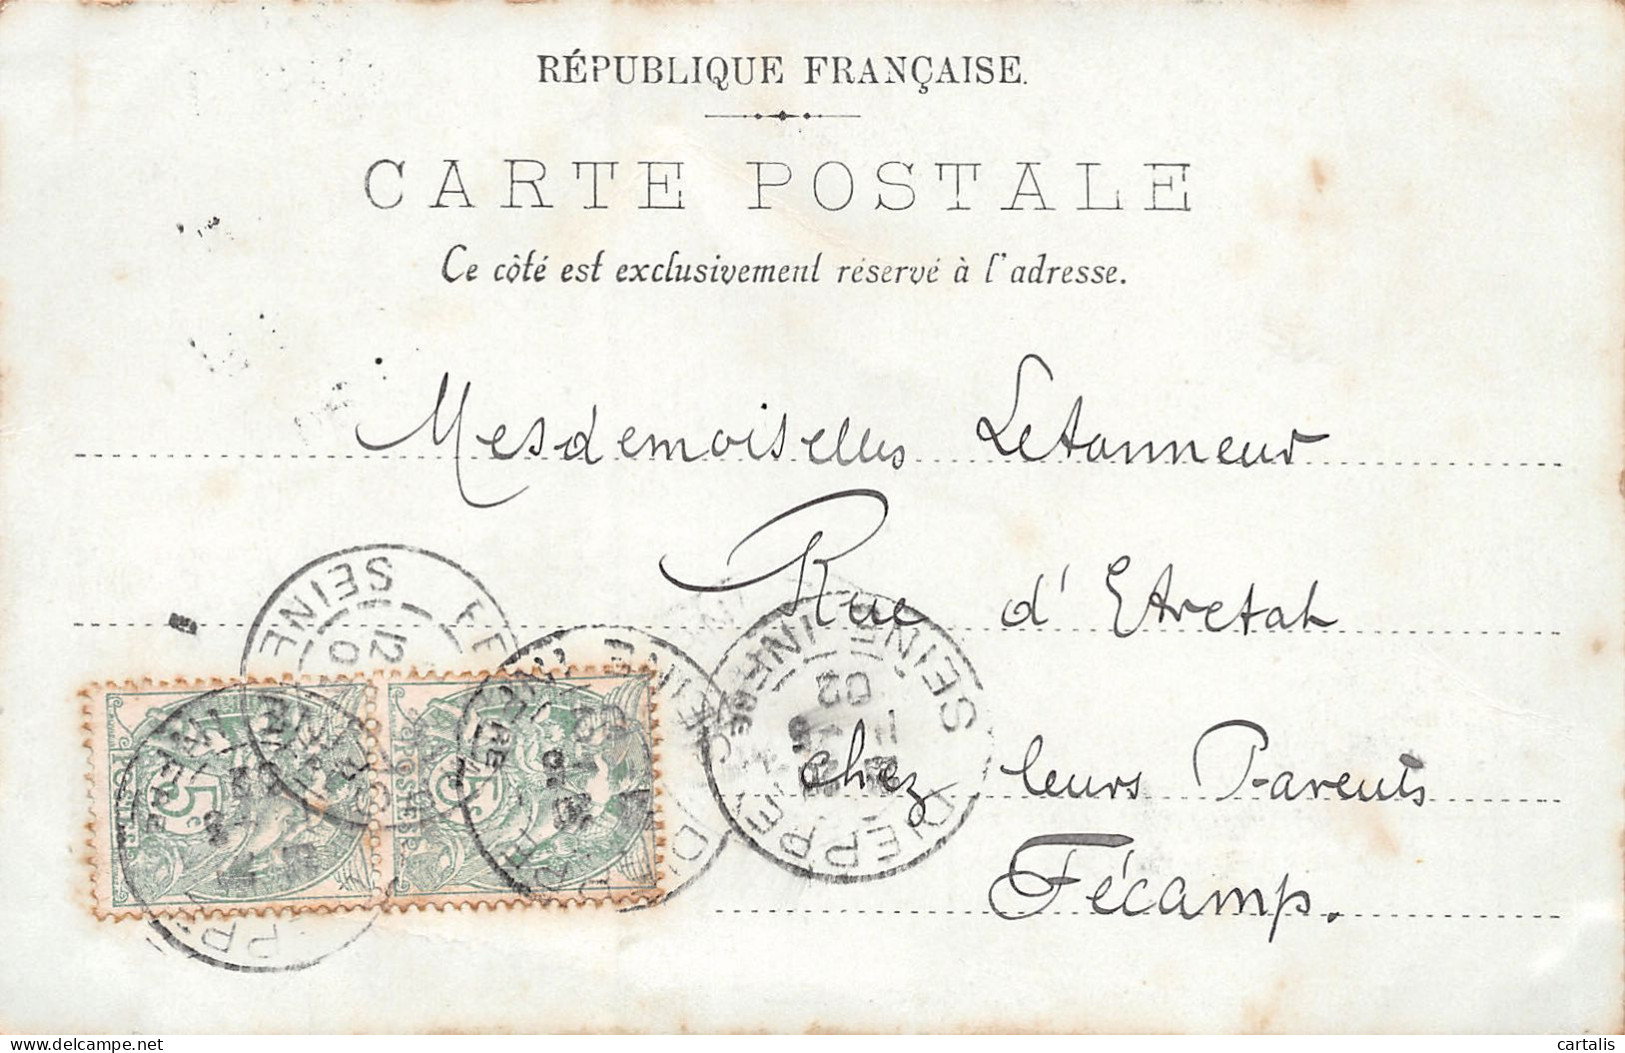 RÉPUBLIQUE FRANÇAISE.
CARTE POSTALE
Ce côté est exclusivement réservé à l'adresse.
Mesdemoiselles Letanneur
Rue d'Etretat
chez leurs Parents
Fécamp.
SEINE
SEINE INFRE
DIEPPE
POSTES
5c
POSTES
5c
cartalis
delcampe.net